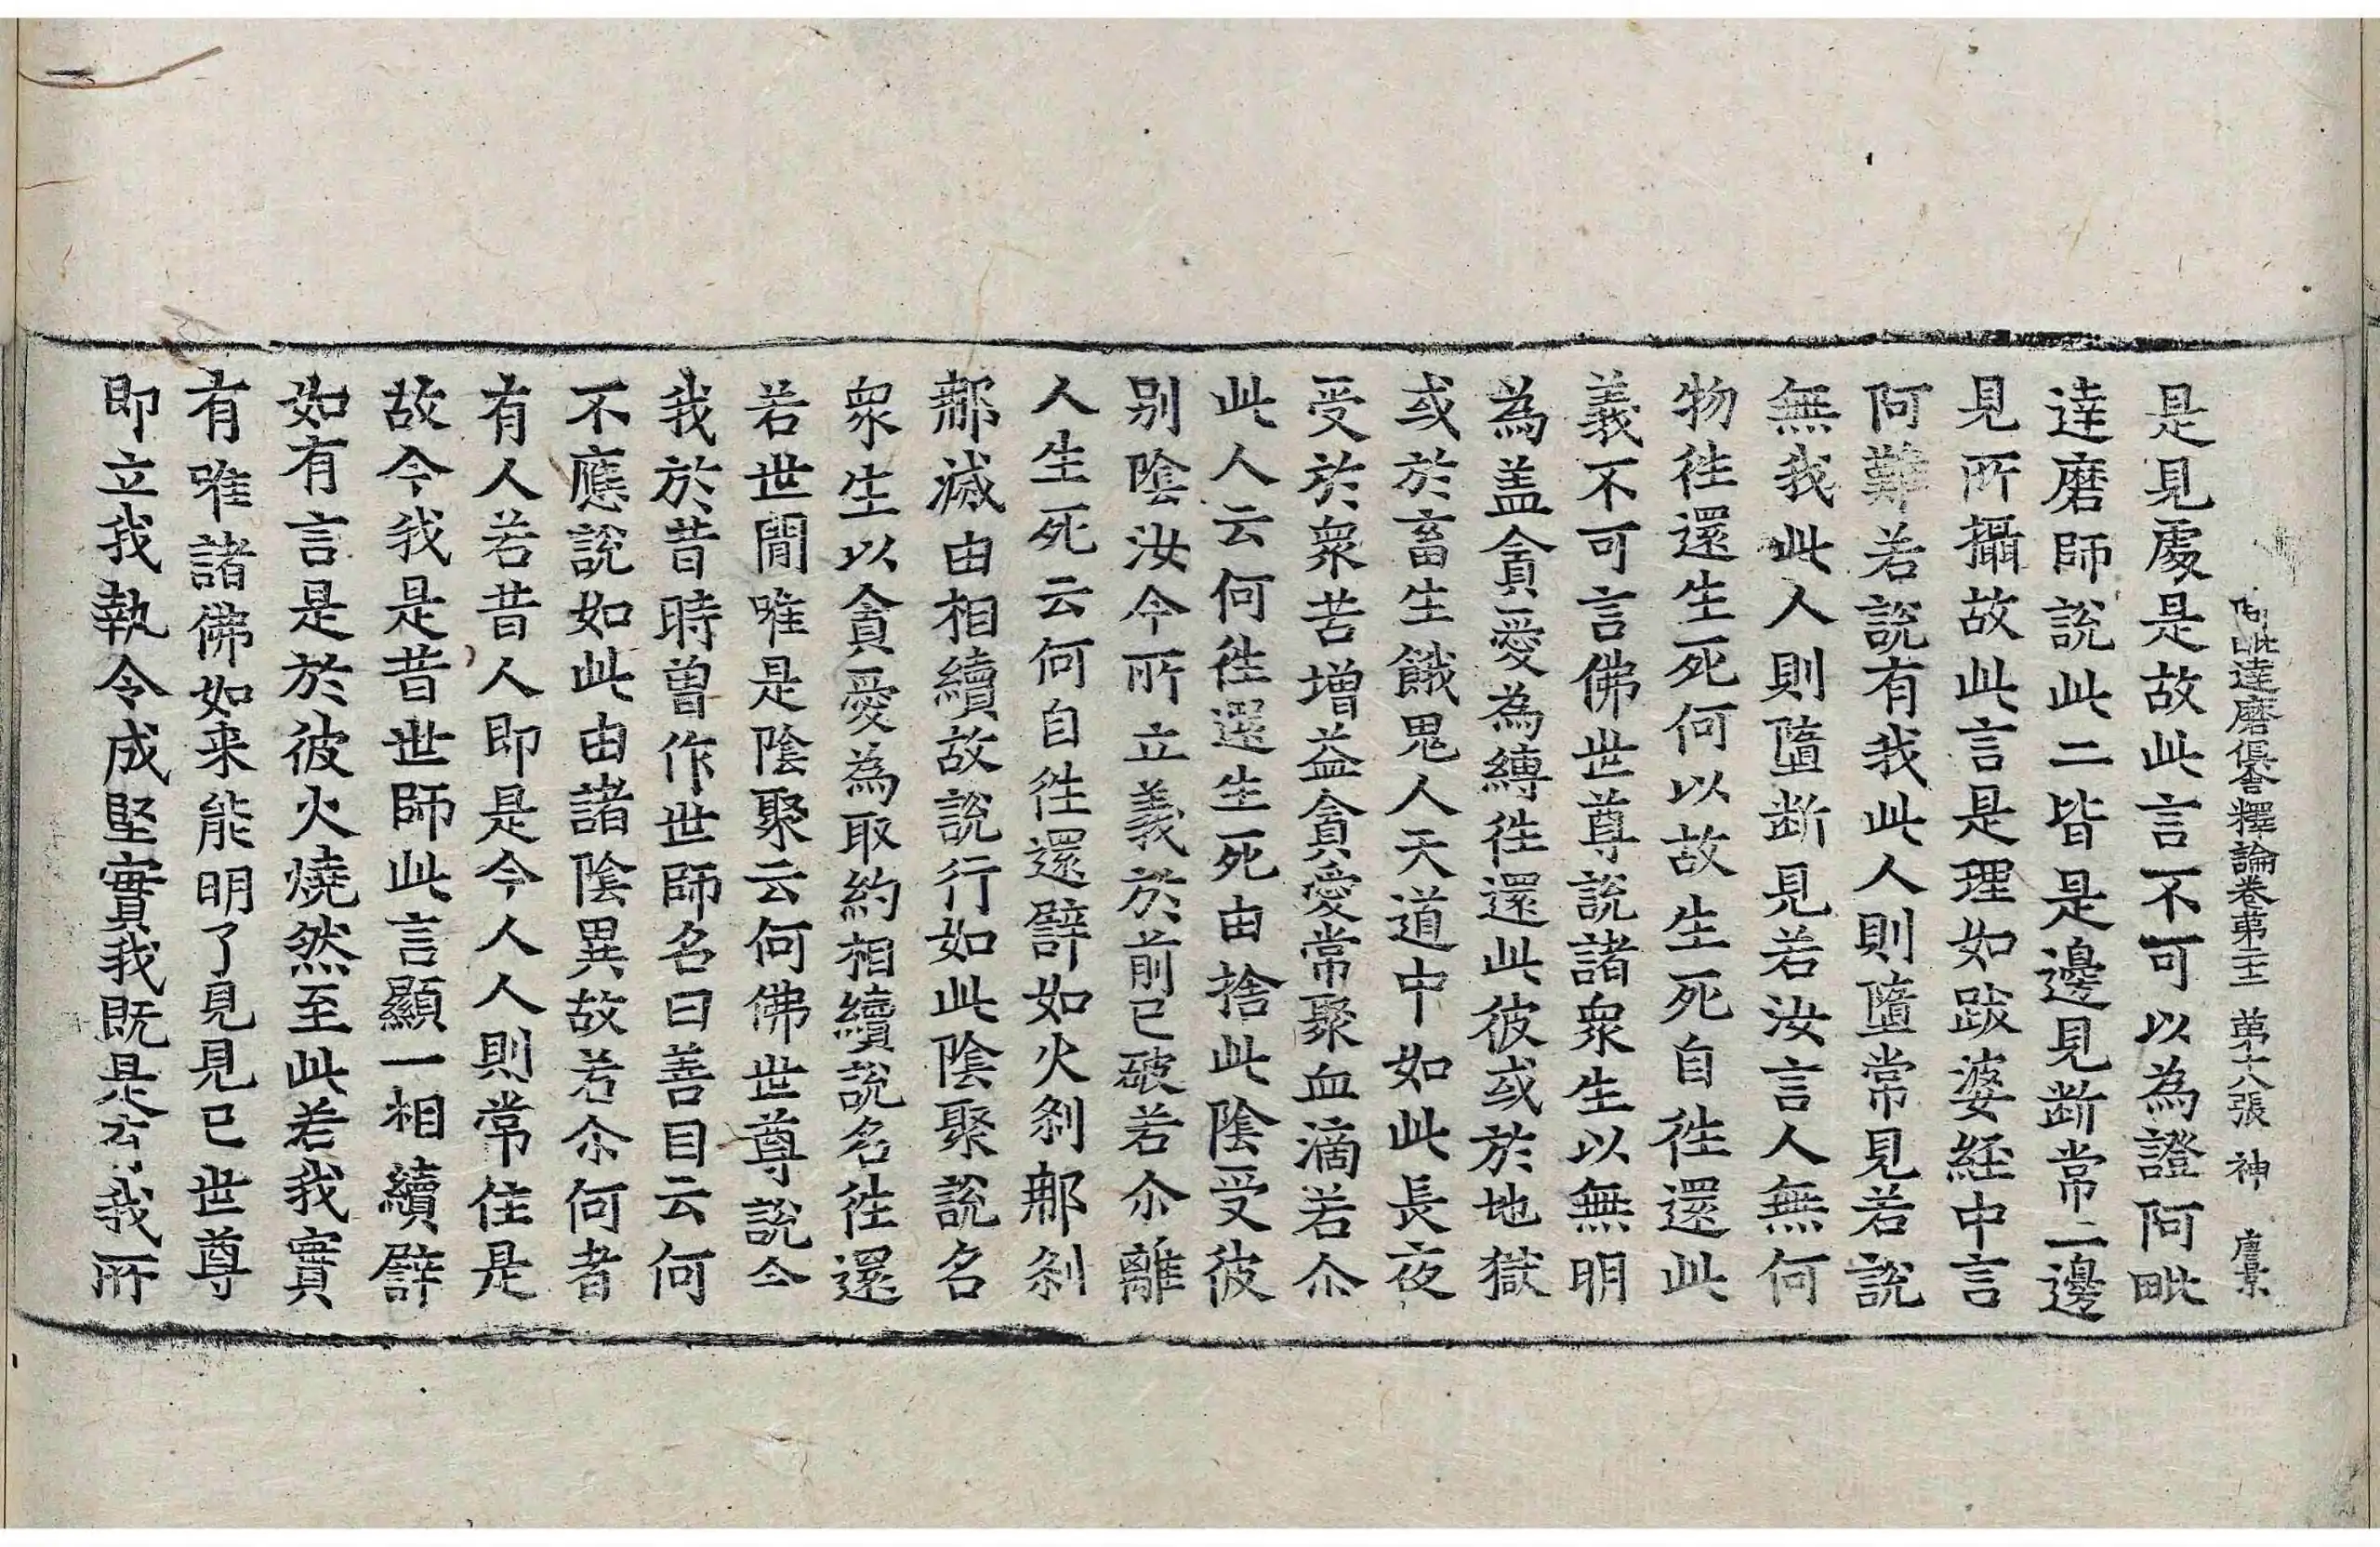 阿毗達磨俱舍釋論卷第二十二 第十八張 神
是見處是故此言不可以為證阿毗
達磨師說此二皆是邊見斷常二邊
見所攝故此言是理如跋婆經中言
阿難若說有我此人則墮常見若說
無我此人則墮斷見若汝言人無何
物徃還生死何以故生死自徃還此
義不可言佛世尊說諸衆生以無明
為盖貪愛為縛徃還此彼或於地獄
或於畜生餓鬼人天道中如此長夜
受於衆苦增益貪愛常聚血滴若尒
此人云何徃還生死由捨此陰受彼
別陰汝今所立義於前已破若尒離
人生死云何自徃還譬如火剎那剎
那滅由相續故說行如此陰聚說名
衆生以貪愛為取約相續說名徃還
若世間唯是陰聚云何佛世尊說今
我於昔時曾作世師名曰善目云何
不應說如此由諸陰異故若尒何者
有人若昔人即是今人人則常住是
故今我是昔世師此言顯一相續譬
如有言是於彼火燒然至此若我實
有唯諸佛如来能明了見見已世尊
即立我執令成堅實我既是有我所